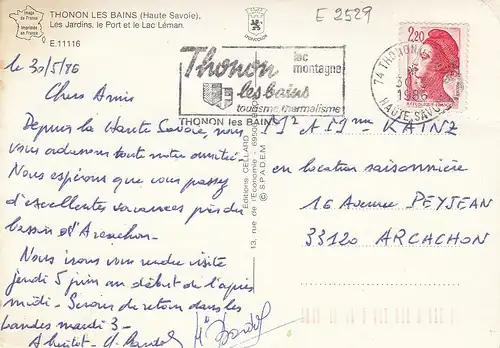 Image de France
Imprimée en France
THONON LES BAINS (Haute Savoie).
Les Jardins, le Port et le Lac Léman.
E.11116
E 2529
le 30/5/86
Chers Amis
Depuis la Haute Savoie, nous
vous adressons toute notre amitié.
Nous espérons que vous passez
d'excellentes vacances près du
bassin d'Arcachon.
Nous irons vous rendre visite
jeudi 5 juin au début de l'après
midi - Serons de retour dans les
Landes mardi 3 -
A bientôt -
Thonon
les bains
lac
montagne
tourisme, thermalisme
THONON les BAINS
74 THONON
1986
HAUTE SAVOIE
2,20
Editions CELLARD
13, rue de l'Economie - 69500
© SPADEM
Mr et Mme KAINZ
en location saisonnière
16 Avenue PEYJEAN
33120 ARCACHON